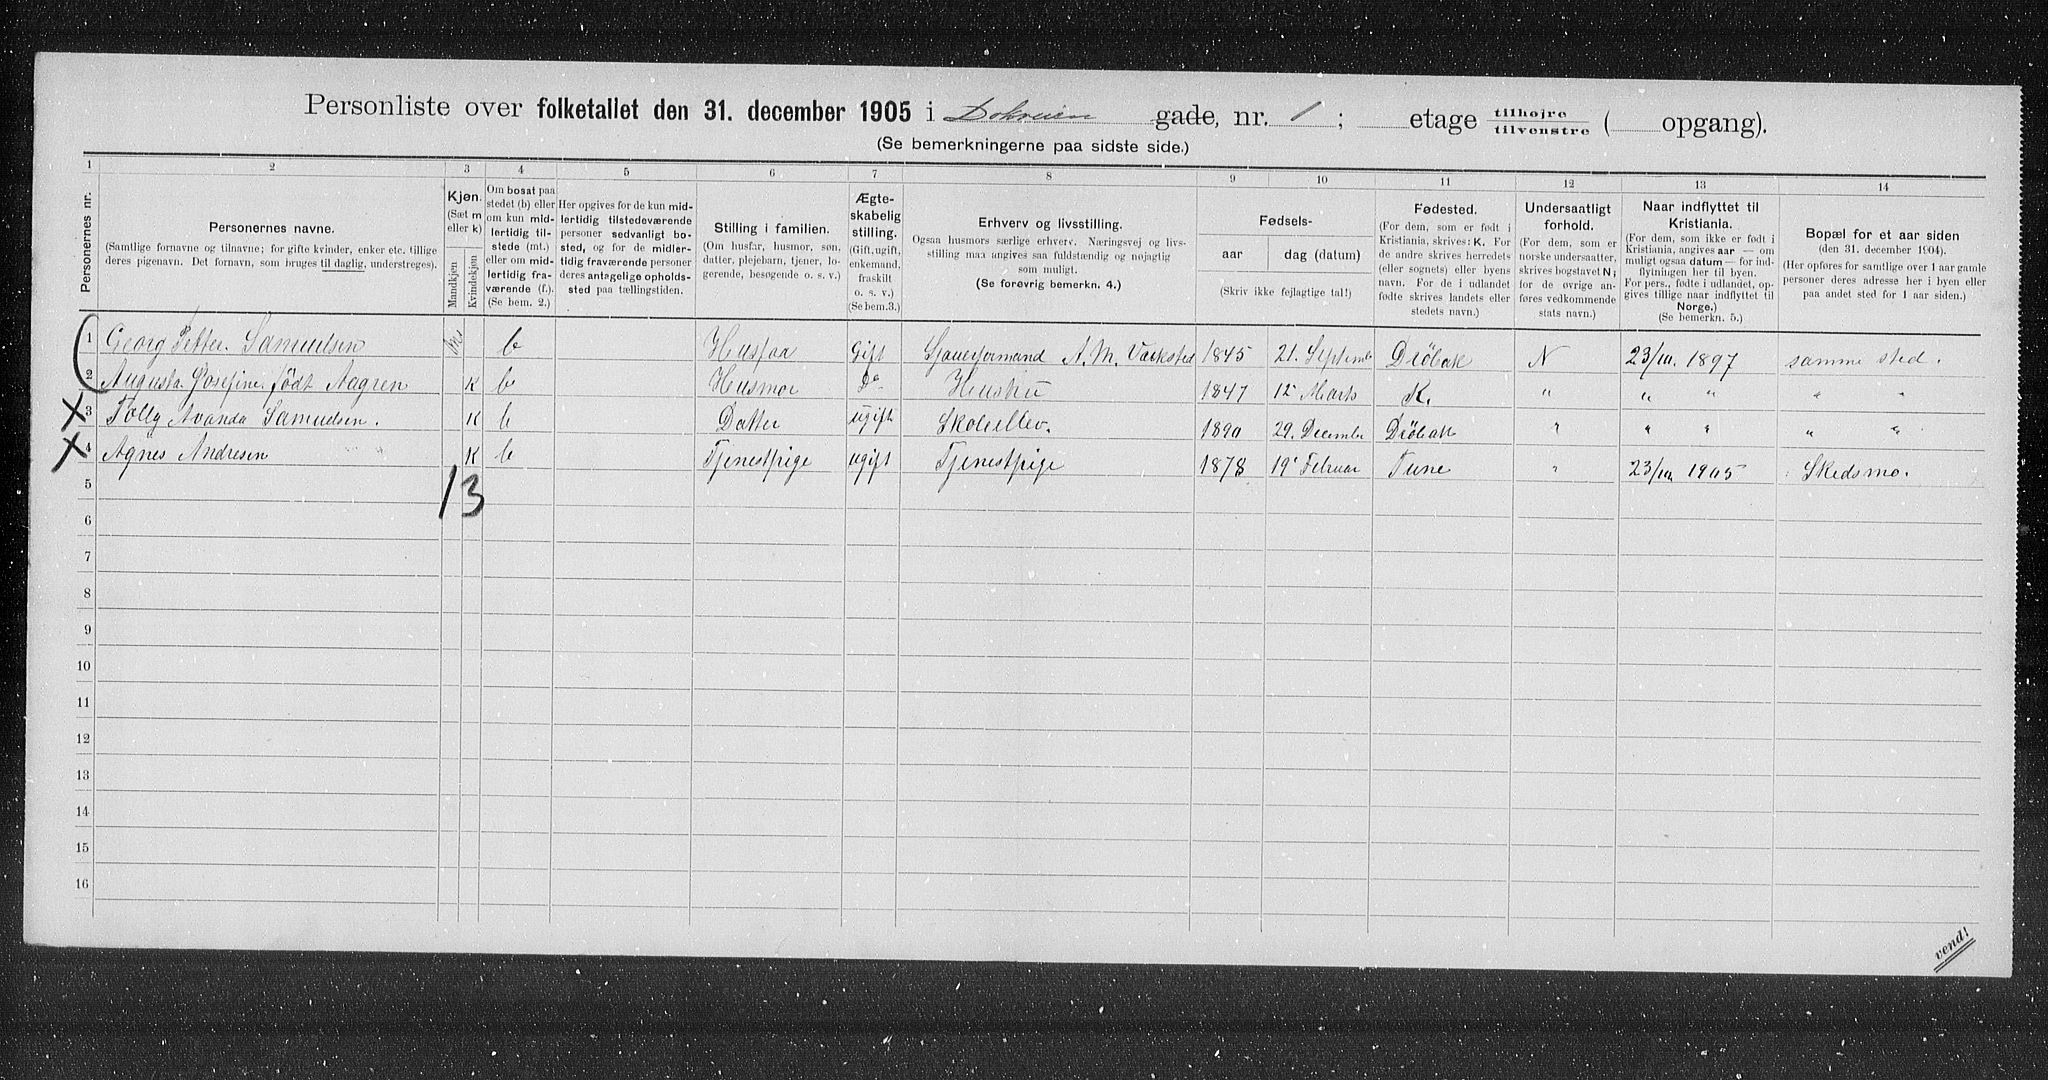 Personliste over folketallet den 31. december 1905 i Dokveien gade, nr. 1 ; etage tilhøjre tilvenstre ( opgang).
(Se bemerkningerne paa sidste side.)
1 2 3 4 5 6 7 8 9 10 11 12 13 14
Personernes nr.
Personernes navne.
(Samtlige fornavne og tilnavne; for gifte kvinder, enker etc. tillige
deres pigenavn. Det fornavn, som bruges til daglig, understreges).
Kjøn.
(Sæt m
eller k)
Mandkjøn
Kvindekjøn
Om bosat paa
stedet (b) eller
om kun mid-
lertidig til-
stede (mt.)
eller om mid-
lertidig fra-
værende (f.).
(Se bem. 2.)
Her opgives for de kun mid-
lertidig tilstedeværende
personer sedvanlig bo-
sted, og for de midler-
tidig fraværende personer
deres antagelige opholds-
sted paa tællingstiden.
Stilling i familien.
(Om husfar, husmor, søn,
datter, plejebarn, tjener, lo-
gerende, besøgende o. s. v.)
Ægte-
skabelig
stilling.
(Gift, ugift,
enkemand,
fraskilt
o. s. v.)
(Se bem.3.)
Erhverv og livsstilling.
Ogsaa husmors særlige erhverv. Næringsvej og livs-
stilling maa angives saa fuldstændig og nøjagtig
som muligt.
(Se forøvrig bemerkn. 4.)
Fødsels-
aar
dag (datum)
(Skriv ikke fejlagtige tal!)
Fødested.
(For dem, som er født i
Kristiania, skrives: K. For
de andre skrives herredets
(eller sognets) eller byens
navn. For de i udlandet
fødte skrives landets eller
stedets navn.)
Undersaatligt
forhold.
(For dem, som er
norske undersaatter,
skrives bogstavet N;
for de øvrige an-
føres vedkommende
stats navn.)
Naar indflyttet til
Kristiania.
(For dem, som ikke er født i
Kristiania, angives aar — om
muligt ogsaa datum — for ind-
flytningen her til byen.
For pers., fødte i udlandet, op-
gives tillige naar indflyttet til
Norge.)
(Se bemerkn. 5.)
Bopæl for et aar siden
(den 31. december 1904).
(Her opføres for samtlige over 1 aar gamle
personer deres adresse her i byen eller
paa andet sted for 1 aar siden.)
1 Georg Petter Samuelsen b Husfar Gift Sjauerformand A. M. Værksted 1845 21. Septembr Drøbak N 23/10. 1897 samme sted.
2 Augusta Josefine født Aagren K b Husmor Do Hustru 1847 12te Marts K. " " " " "
3 Tolly Avanda Samuelsen. K b Datter ugift Skoleelev. 1890 29. Decembr Drøbak " " " " "
4 Agnes Andresen K b Tjenestpige ugift Tjenestpige 1878 19. Februar Tune " 23/10 1905 Skedsmo.
5
1 3
6
7
8
9
10
11
12
13
14
15
16
vend!